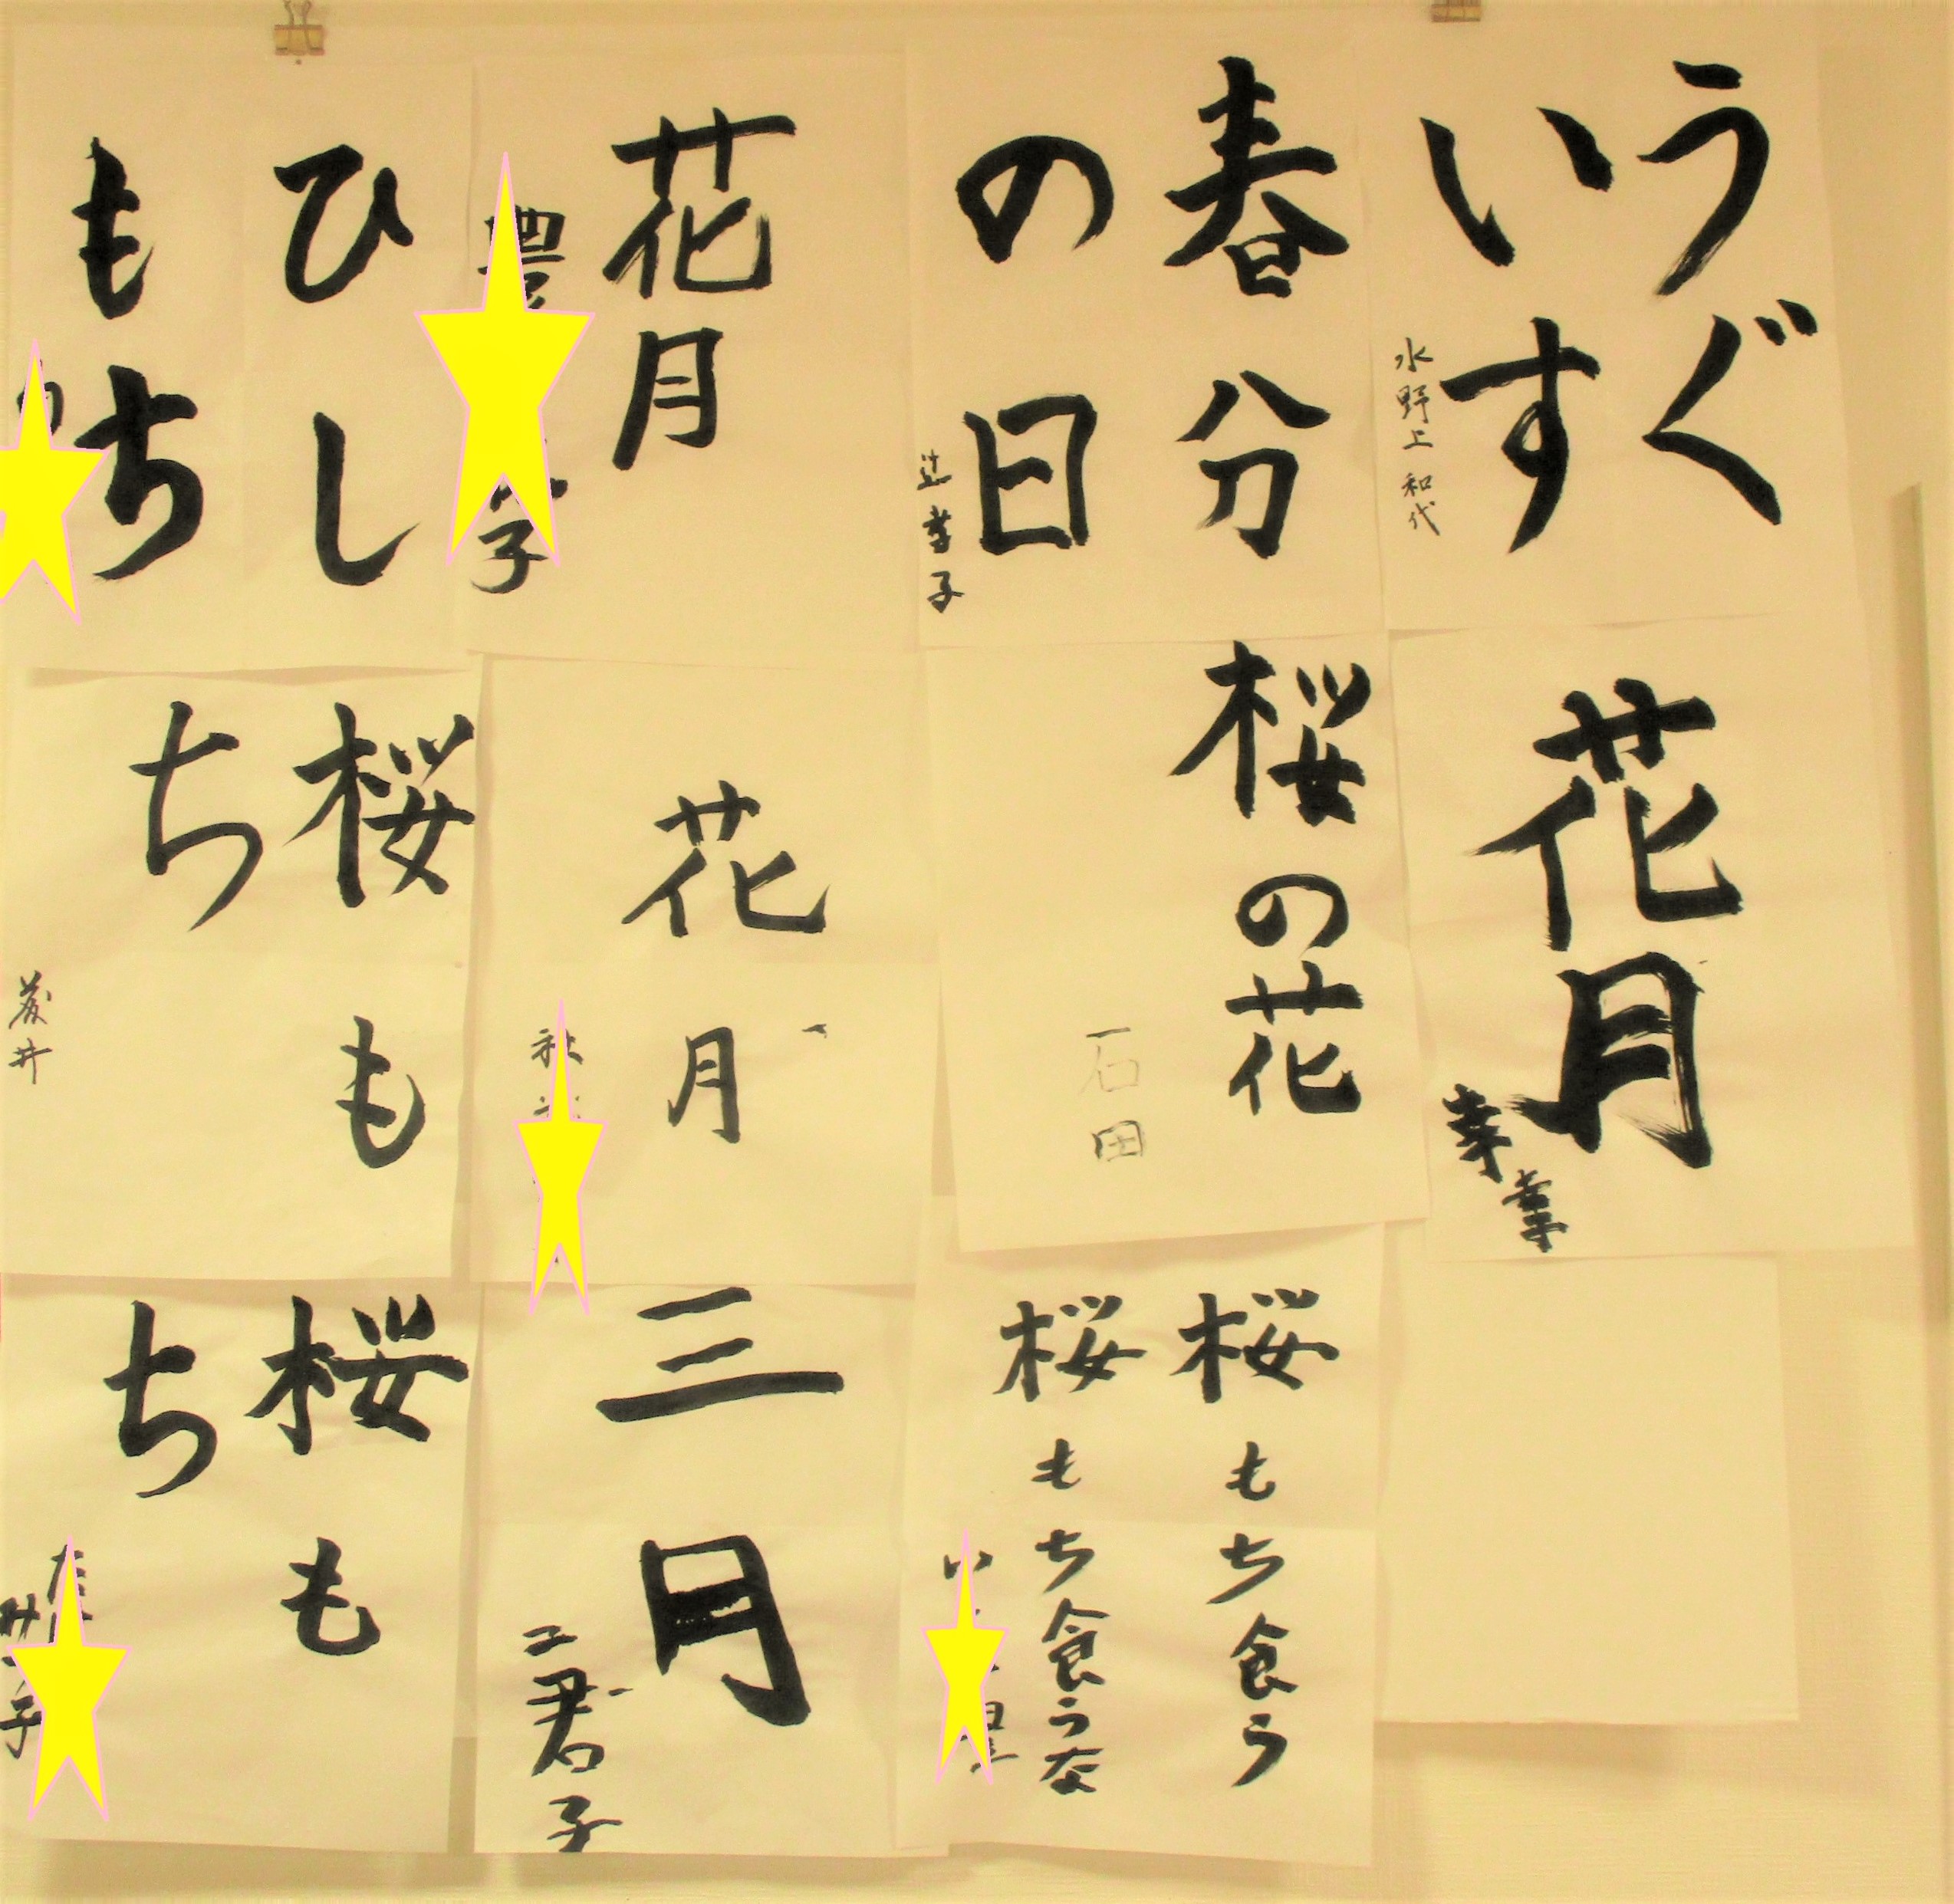 うぐ
いす
水野上和代
春分
の日
辻孝子
花月
豊
子
ひし
もち
花月
桜の花
石田
花月
秋
桜も
ち
藤井
桜もち食う
桜もち食うな
三月
君子
桜も
ち